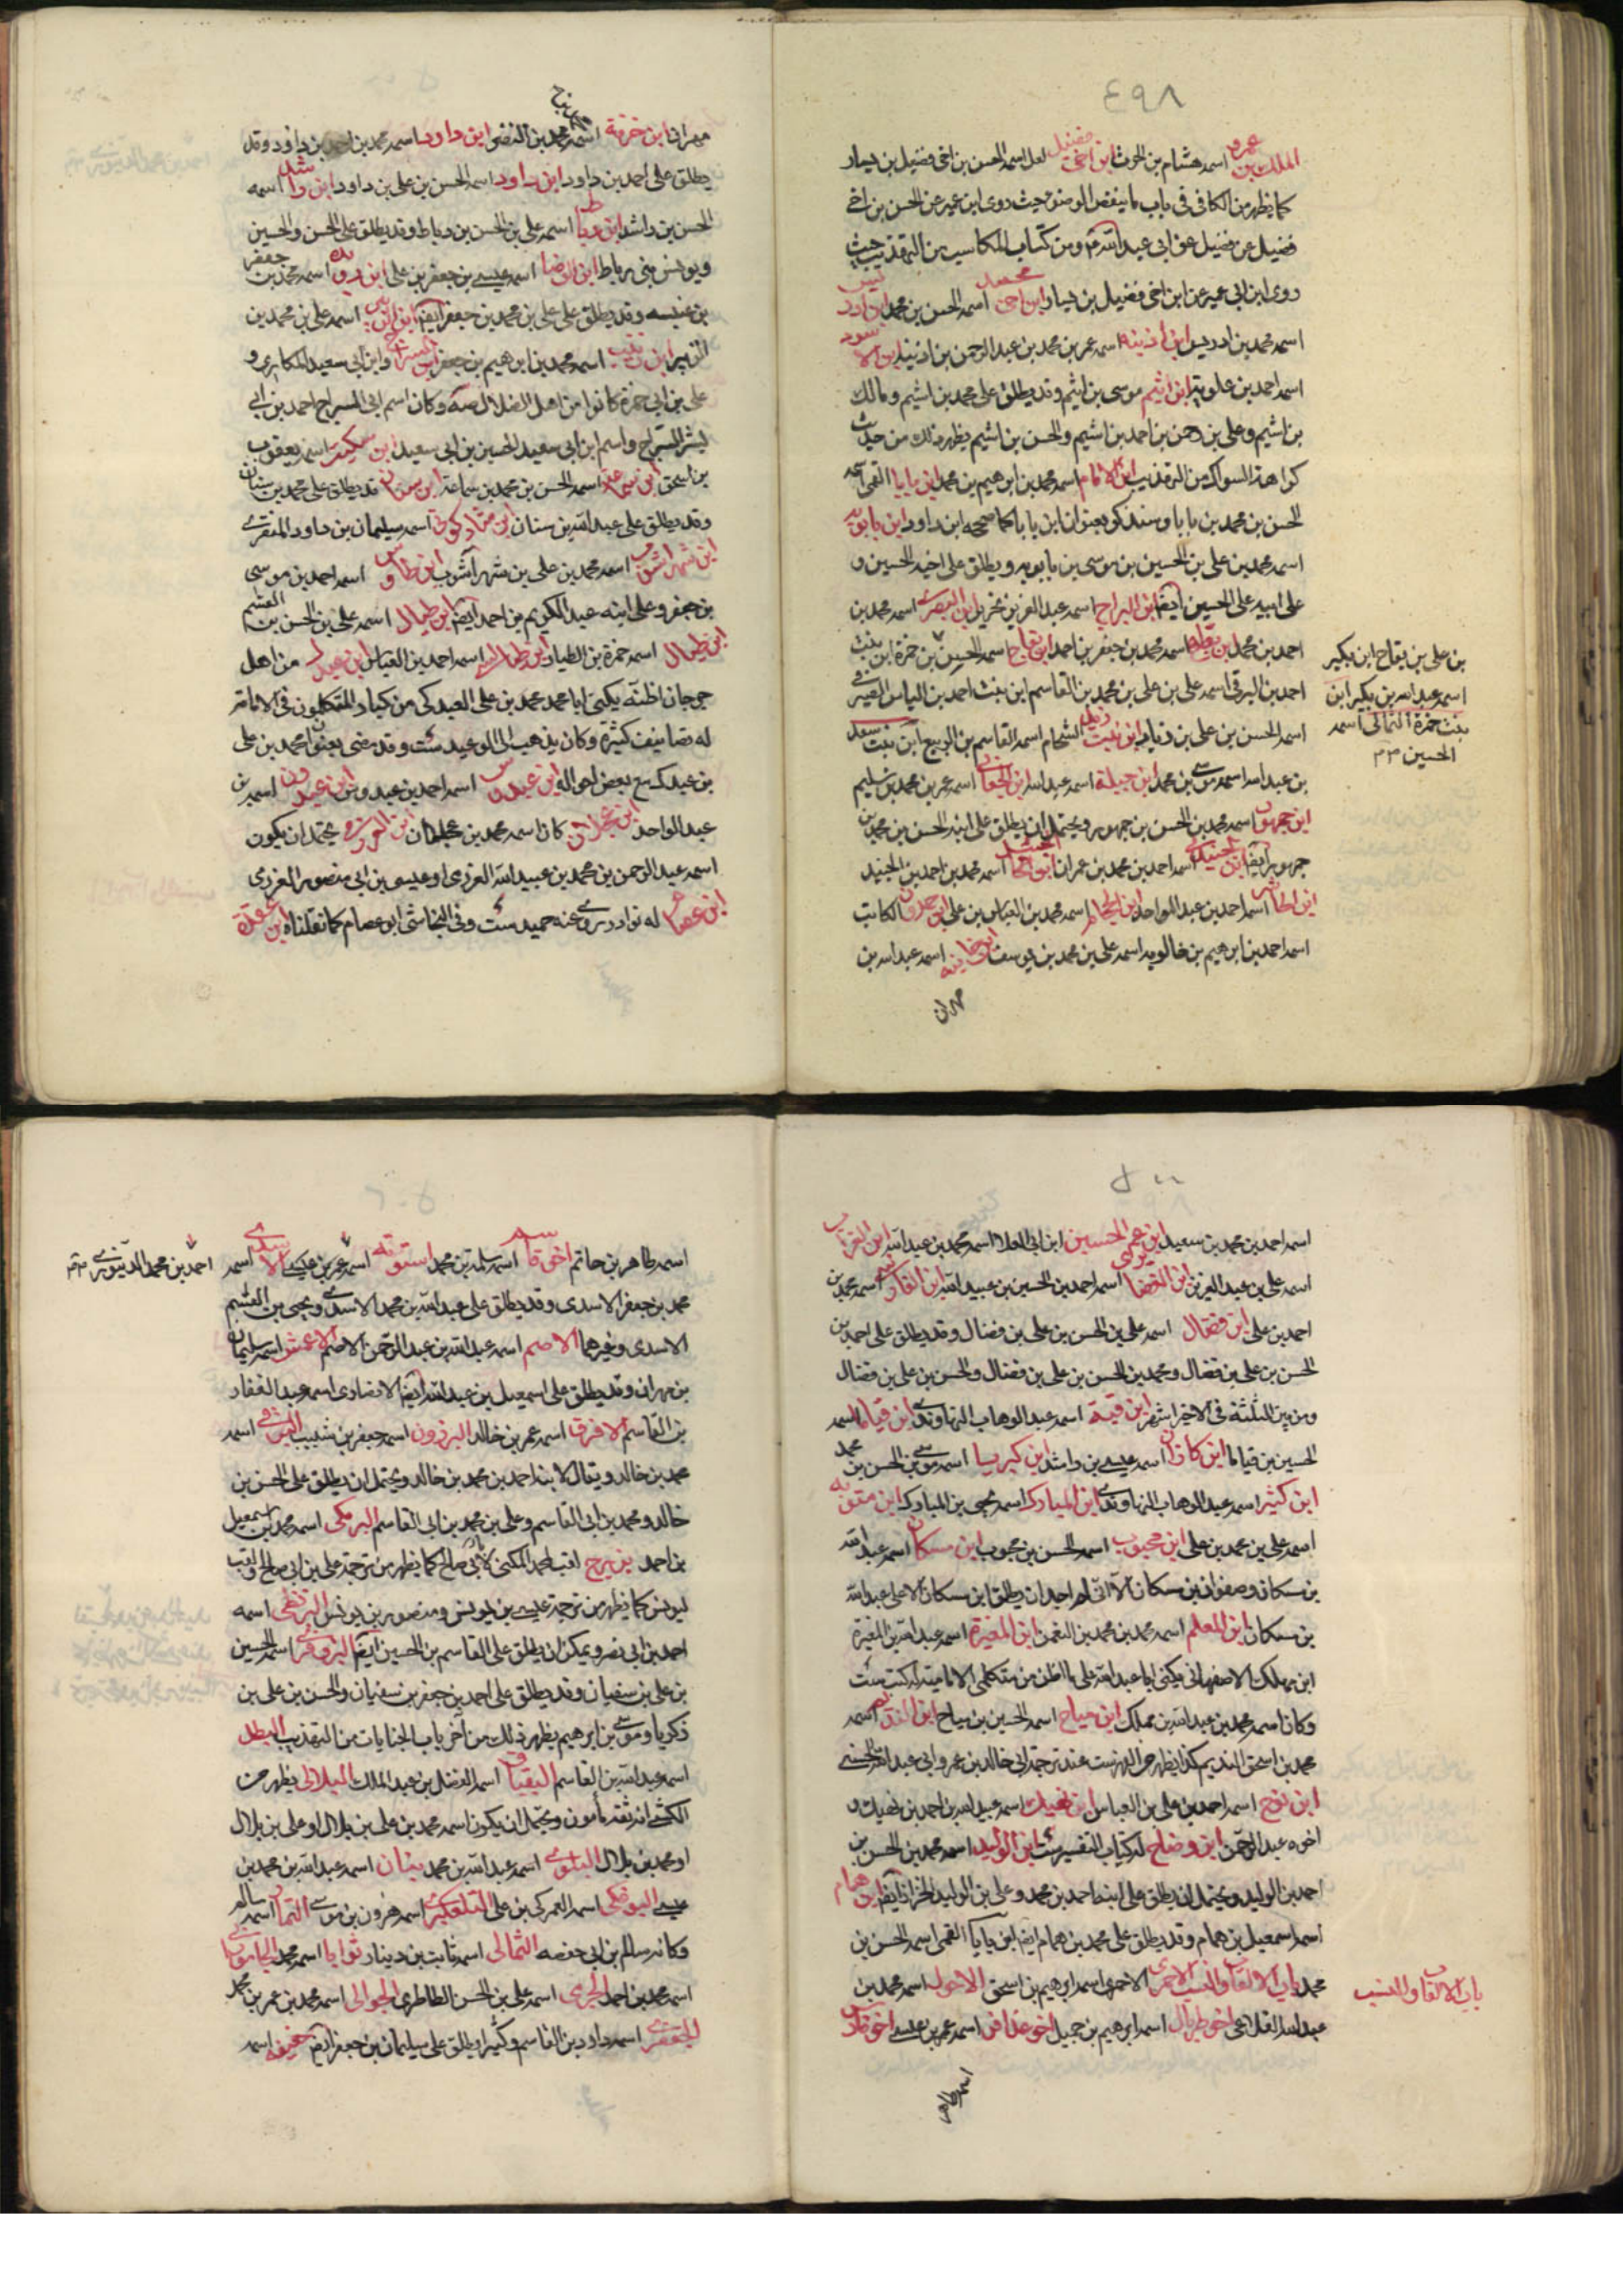 ٤٩٨
الملك بن عمرو اسمه هشام بن الحرث ابن اخى فضيل لعل اسمه الحسن بن اخى فضيل بن يسار
كما يظهر من الكافى فى باب ما ينقض الوضوء حيث روى ابن عمير عن الحسن بن اخى
فضيل عن فضيل عن ابى عبد الله ع ومن كتاب المكاسب من التهذيب حيث
روى ابن ابى عمير عن ابن اخى فضيل بن يسار اسمه الحسن بن محمد ابن ادريس
اسمه محمد بن ادريس ابن اذينة اسمه عمر بن محمد بن عبد الرحمن بن اذينه ابن الاسود
اسمه احمد بن علويه ابن اشيم موسى بن اشيم وقد يطلق على محمد بن اشيم ومالك
بن اشيم وعلى بن احمد بن اشيم والحسن بن اشيم يظهر ذلك من حديث
كراهة السواك من التهذيب ابن الامام اسمه محمد بن ابرهيم بن محمد ابن بابا القمى اسمه
الحسن بن محمد بن بابا وسنذكره بعنوان ابن بابا كما صححه ابن داود ابن بابويه
اسمه محمد بن على بن الحسين بن موسى بن بابويه ويطلق على اخيه الحسين و
على ابيه على بن الحسين ايضا ابن البراج اسمه عبد العزيز بن نحرير ابن البصرى اسمه محمد بن
احمد بن محمد ابن بطة اسمه محمد بن جعفر بن احمد ابن بقاح اسمه الحسن بن حمزة ابن بنت
احمد بن البرقى اسمه على بن على بن محمد بن القاسم ابن بنت احمد بن الياس الصيرفى
اسمه الحسن بن على بن زياد ابن بنت زيد الشحام اسمه القاسم بن الربيع ابن بنت سعد
بن عبد الله اسمه موسى بن محمد ابن جبلة اسمه عبد الله ابن الجعابى اسمه عمر بن محمد بن سليم
ابن جمهور اسمه محمد بن الحسن بن جمهور ويحتمل ان يطلق على ابنه الحسن بن محمد بن
جمهور ايضا ابن الجندى اسمه احمد بن محمد بن عمران اسمه محمد بن احمد بن الجنيد
ابن الحاشر اسمه احمد بن عبد الواحد ابن الحجام اسمه محمد بن العباس بن على ابن حمدون الكاتب
اسمه احمد بن ابرهيم بن خالويه اسمه على بن محمد بن يوسف ابن خانبه اسمه عبد الله بن
مهران
بن على بن بقاح ابن بكير
اسمه عبد الله بن بكير ابن
بنت حمزة الثمالى اسمه
الحسين
مهران ابن خرقة اسمه محمد بن النضر ابن داود اسمه محمد بن احمد بن داود وقد
يطلق على احمد بن داود ابن داود اسمه الحسن بن على بن داود ابن راشد اسمه
الحسن بن راشد ابن رباط اسمه على بن الحسن بن رباط وقد يطلق على الحسن والحسين
ويونس بنى رباط ابن الرضا اسمه عيسى بن جعفر بن على اسمه محمد بن جعفر
بن عنبسه وقد يطلق على على بن محمد بن جعفر ايضا ابن الزبير اسمه على بن محمد بن
الزبير ابن زينب اسمه محمد بن ابرهيم بن جعفر ابن السراج وابن ابى سعيد المكارى و
على بن ابى حمزة كانوا من اهل الضلال صه وكان اسم ابن السراج احمد بن ابى
بشر السراج واسم ابن ابى سعيد الحسين بن ابى سعيد ابن سكيت اسمه يعقوب
بن اسحق ابن سماعة اسمه الحسن بن محمد بن سماعة ابن سنان قد يطلق على محمد بن سنان
وقد يطلق على عبد الله بن سنان ابن شاذكونى اسمه سليمان بن داود المنقرى
ابن شهراشوب اسمه محمد بن على بن شهراشوب ابن طاوس اسمه احمد بن موسى
بن جعفر وعلى ابنه عبد الكريم بن احمد ايضا ابن طبال اسمه على بن الحسن بن القسم
ابن طيار اسمه حمزة بن الطيار اسمه احمد بن العباس ابن عبدك من اهل
جرجان اظنه يكنى ابا محمد محمد بن على العبدكى من كبار المتكلمين فى الامامة
له تصانيف كثيرة وكان يذهب الى الوعيد ست وقد مضى بعنوان محمد بن على
بن عبدك مع بعض احواله ابن عبدوس اسمه احمد بن عبدوس ابن عبدون اسمه احمد بن
عبد الواحد ابن عجلان كان اسمه محمد بن عجلان ابن العرزمى يحتمل ان يكون
اسمه عبد الرحمن بن محمد بن عبيد الله العرزمى او عيسى بن ابى منصور العرزمى
ابن عصام له نوادر روى عنه حميد ست وفى النجاشى ابو عصام كما نقلناه ابن عقدة
٥٠٠
اسمه احمد بن محمد بن سعيد ابن عم الحسين ابن ابى العلا اسمه محمد بن عبد الله ابن الغراب
اسمه على بن عبد العزيز ابن الغضايرى اسمه احمد بن الحسين بن عبيد الله ابن الفارسى اسمه محمد بن
احمد بن على ابن فضال اسمه على بن الحسن بن على بن فضال وقد يطلق على احمد بن
الحسن بن على بن فضال ومحمد بن الحسن بن على بن فضال والحسن بن على بن فضال
ومن بين الثلثة فى الاخير اشهر ابن قتيبة اسمه عبد الوهاب النهاوندى ابن قياما اسمه
الحسين بن قياما ابن كازر اسمه عيسى بن راشد ابن كبرياء اسمه موسى بن الحسن بن محمد
ابن كثير اسمه عبد الوهاب النهاوندى ابن المبارك اسمه يحيى بن المبارك ابن متويه
اسمه على بن محمد بن على ابن محبوب اسمه الحسن بن محبوب ابن مسكان اسمه عبد الله
بن مسكان وصفوان بن مسكان الا انى لم اجد ان يطلق ابن مسكان الا على عبد الله
بن مسكان ابن المعلم اسمه محمد بن محمد بن النعمن ابن المغيرة اسمه عبد الله بن المغيرة
ابن مملك الاصفهانى يكنى ابا عبد الله على ما اظن من متكلمى الامامية له كتب ست
وكان اسمه محمد بن عبد الله بن مملك ابن مياح اسمه الحسين بن مياح ابن النديم اسمه
محمد بن اسحق النديم كذا يظهر من الفهرست عند ترجمة ابى خالد بن عمرو ابى عبد الله الحسنى
ابن نوح اسمه احمد بن على بن العباس ابن نهيك اسمه عبيد الله بن احمد بن نهيك و
اخوه عبد الرحمن ابن وضاح له كتاب التفسير ست ابن الوليد اسمه محمد بن الحسن بن
احمد بن الوليد ويحتمل ان يطلق على ابنه احمد بن محمد وعلى بن الوليد الخزاز ايضا ابن همام
اسمه اسمعيل بن همام وقد يطلق على محمد بن همام ايضا ابن يابا القمى اسمه الحسن بن
محمد باب الالقاب والنسب الاحمرى الاحمرى اسمه ابرهيم بن اسحق الاحول اسمه محمد بن
عبد الله القلاعى اخو طربال اسمه ابرهيم بن جميل اخو عذافر اسمه عمر بن عيسى اخو فارس
اسمه طاهر
باب الالقاب والنسب
اسمه طاهر بن حاتم اسمه سلمة بن محمد استونه اسمه عمر بن عيسى الاسدى اسمه
محمد بن جعفر الاسدى وقد يطلق على عبد الله بن محمد الاسدى ويحيى بن القسم
الاسدى وغيرهما الاصم اسمه عبد الله بن عبد الرحمن الاصم الاعمش اسمه سليمان
بن مهران وقد يطلق على اسمعيل بن عبد الله ايضا الانصارى اسمه عبد الغفار
بن القاسم الافرق اسمه عمر بن خالد البرذون اسمه جعفر بن شبيب البرقى اسمه
محمد بن خالد ويقال لابنه احمد بن محمد بن خالد ويحتمل ان يطلق على الحسن بن
خالد ومحمد بن ابى القاسم وعلى بن محمد بن ابى القاسم البرمكى اسمه محمد بن اسمعيل
بن احمد بزرج لقب لمحمد المكنى لابى صالح كما يظهر من ترجمة على بن ابى صالح ولقب
ليونس كما يظهر من ترجمة عيسى بن يونس ومنصور بن يونس البزنطى اسمه
احمد بن ابى نصر ويمكن ان يطلق على القاسم بن الحسين ايضا البزوفرى اسمه الحسين
بن على بن سفيان وقد يطلق على احمد بن جعفر بن سفيان والحسن بن على بن
زكريا وموسى بن ابرهيم يظهر ذلك من آخر باب الجنايات من التهذيب البطل
اسمه عبد الله بن القاسم البقباق اسمه الفضل بن عبد الملك البلالى يظهر من
الكشى انه ثقة مأمون ويحتمل ان يكون اسمه محمد بن على بن بلال او على بن بلال
او محمد بن بلال البلوى اسمه عبد الله بن محمد بنان اسمه عبد الله بن محمد بن
عيسى البوفكى اسمه العمركى بن على التلعكبرى اسمه هرون بن موسى التمار اسمه سالم
وكانه سالم بن ابى حفصه الثمالى اسمه ثابت بن دينار ثوابا اسمه محمد الجامورانى
اسمه محمد بن احمد الجرمى اسمه على بن الحسن الطاطرى الجوالى اسمه محمد بن عمر بن محمد
الجعفرى اسمه داود بن القاسم وكثيرا يطلق على سليمان بن جعفر ايضا حفيفه اسمه
احمد بن محمد الدينورى